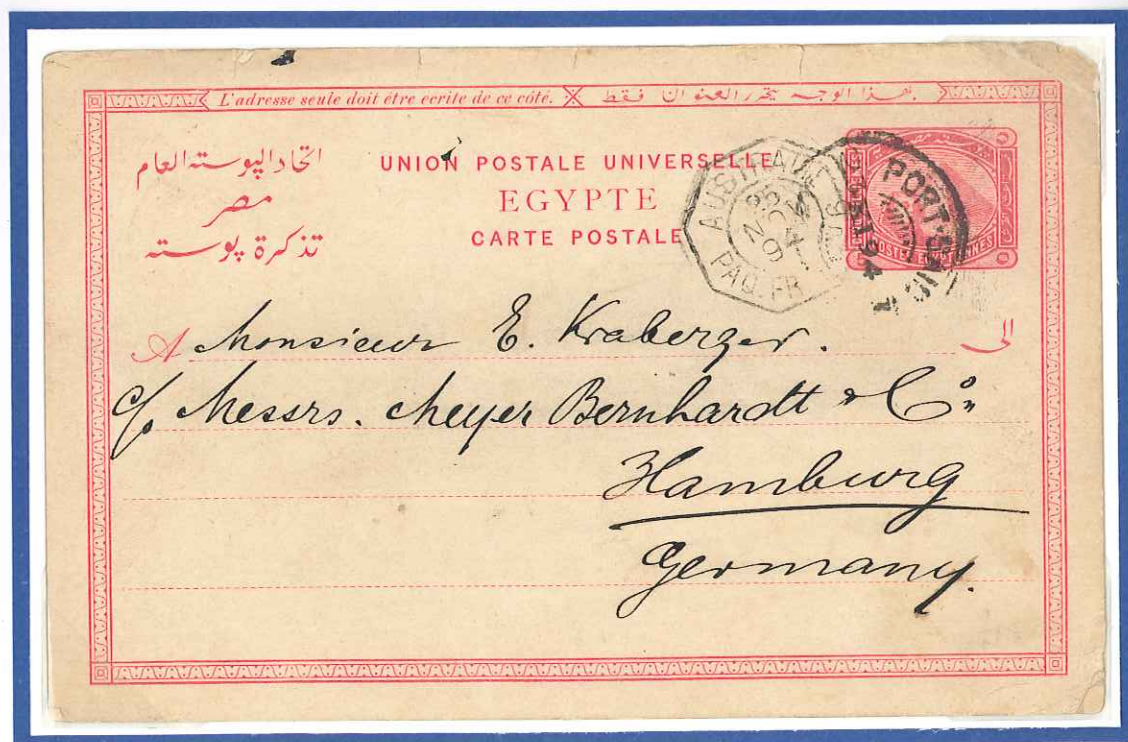 L'adresse seule doit être ecrite de ce côté. بهذا الوجه يحرر العنوان فقط
اتحاد البوسته العام
مصر
تذكرة بوسته
UNION POSTALE UNIVERSELLE
EGYPTE
CARTE POSTALE
25
NOV
94
PAQ. FR
PORT-SAID
94
POSTES EGYPTIENNES
A Monsieur E. Kraberger. الى
c/o Messrs. Meyer Bernhardt & Co.
Hamburg
Germany.